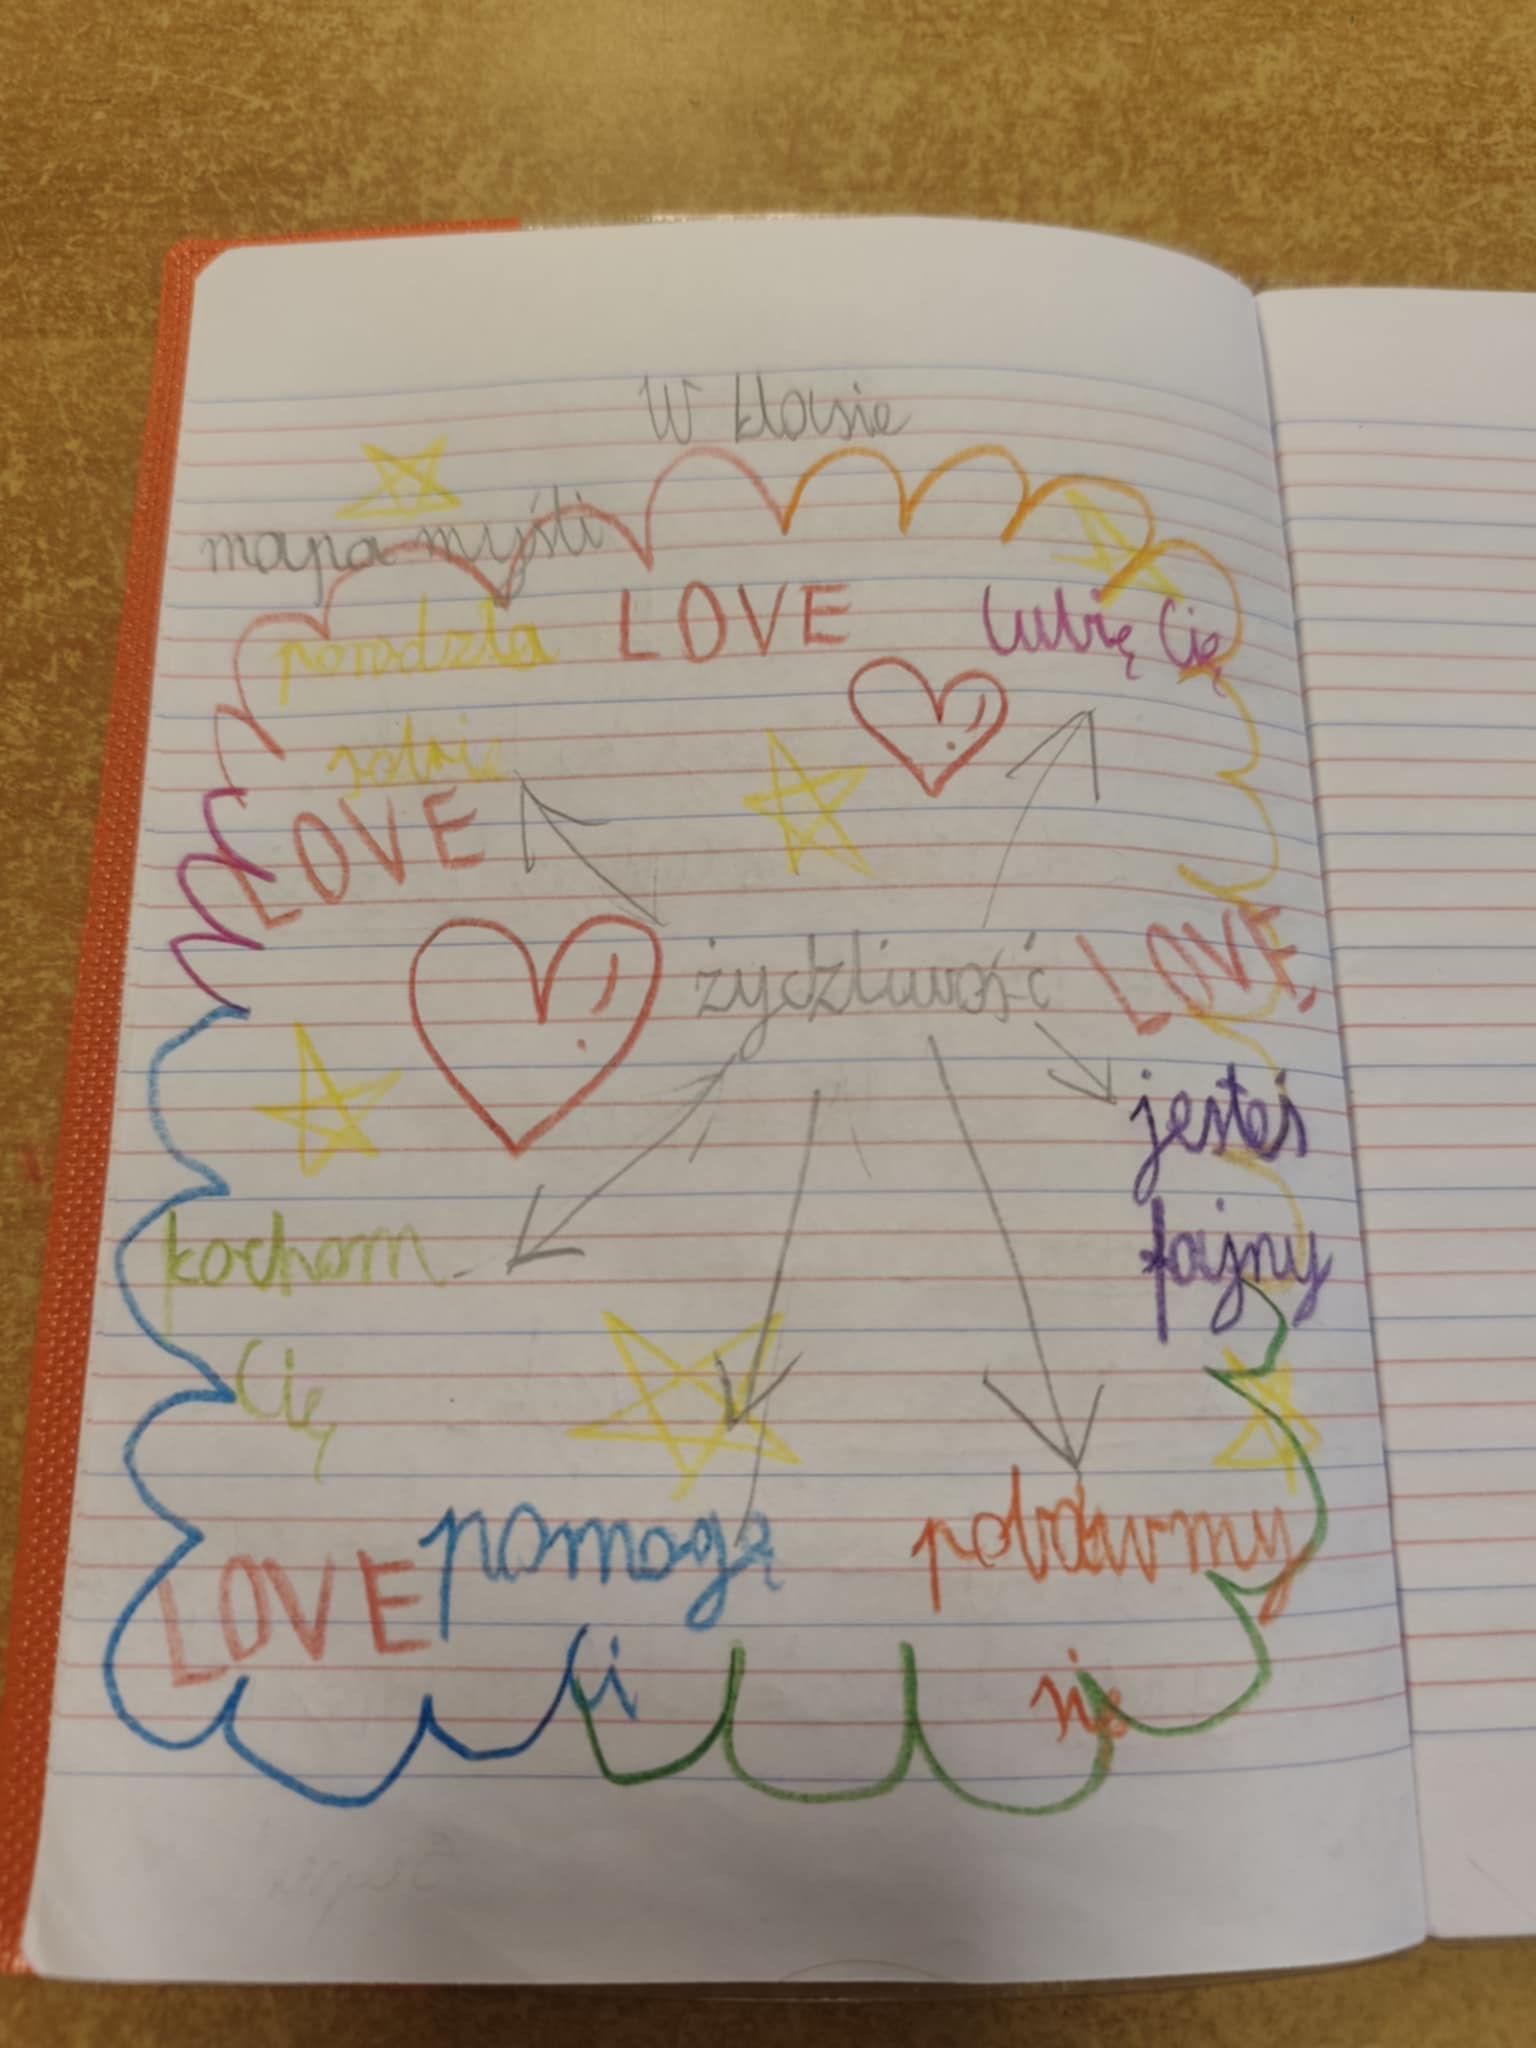 W klasie
mapa myśli
poradzła
sobie
LOVE
lubię Cię
LOVE
żydzliwość
LOVE,
jesteś
fajny
kocham
Cię
LOVE
pomogę
Ci
pobawmy
się